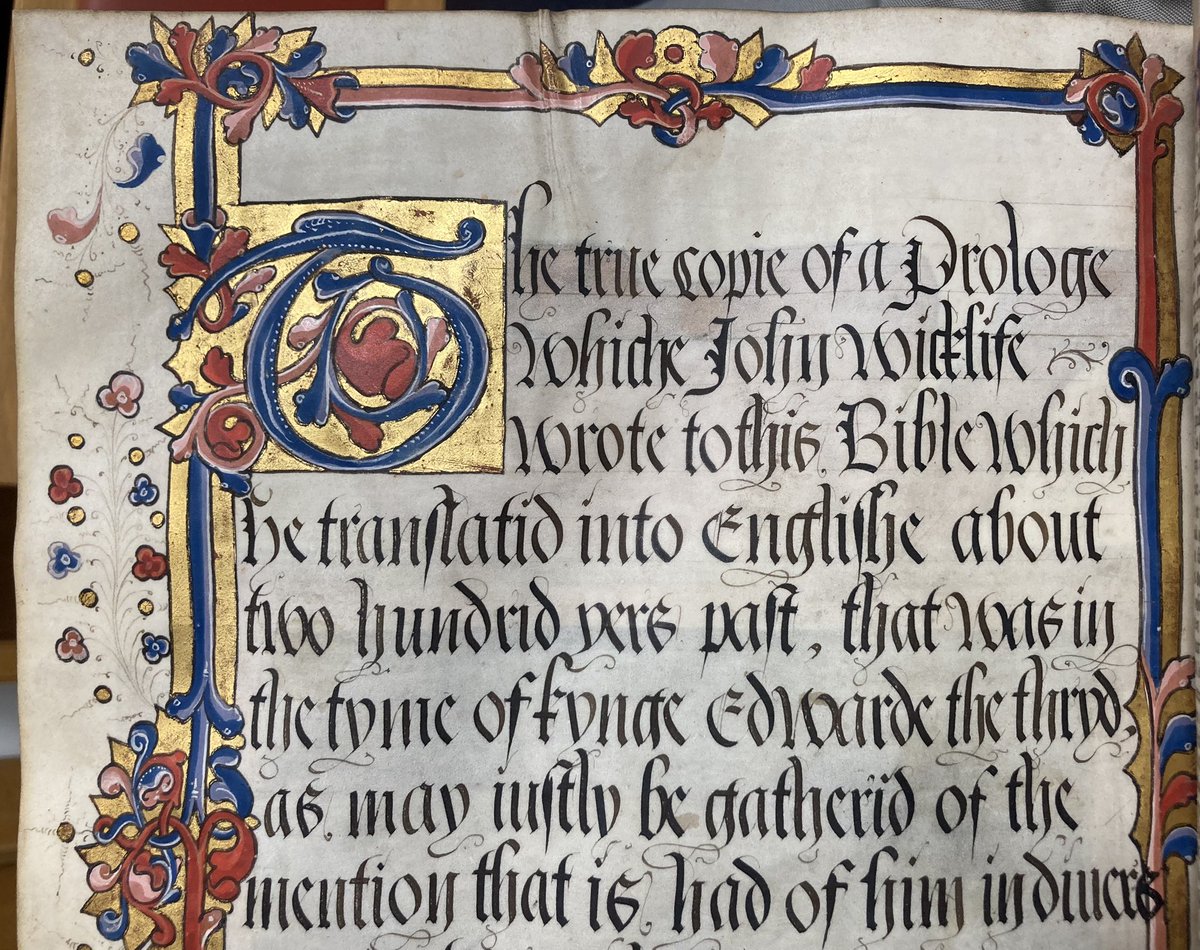 The true copie of a Prologe
Whiche John Wicklife
Wrote to this Bible Which
he translatid into Englishe about
two hundrid yers past, that was in
the tyme of kynge Edwarde the thryd,
as may iustly be gatherid of the
mention that is had of him in divers